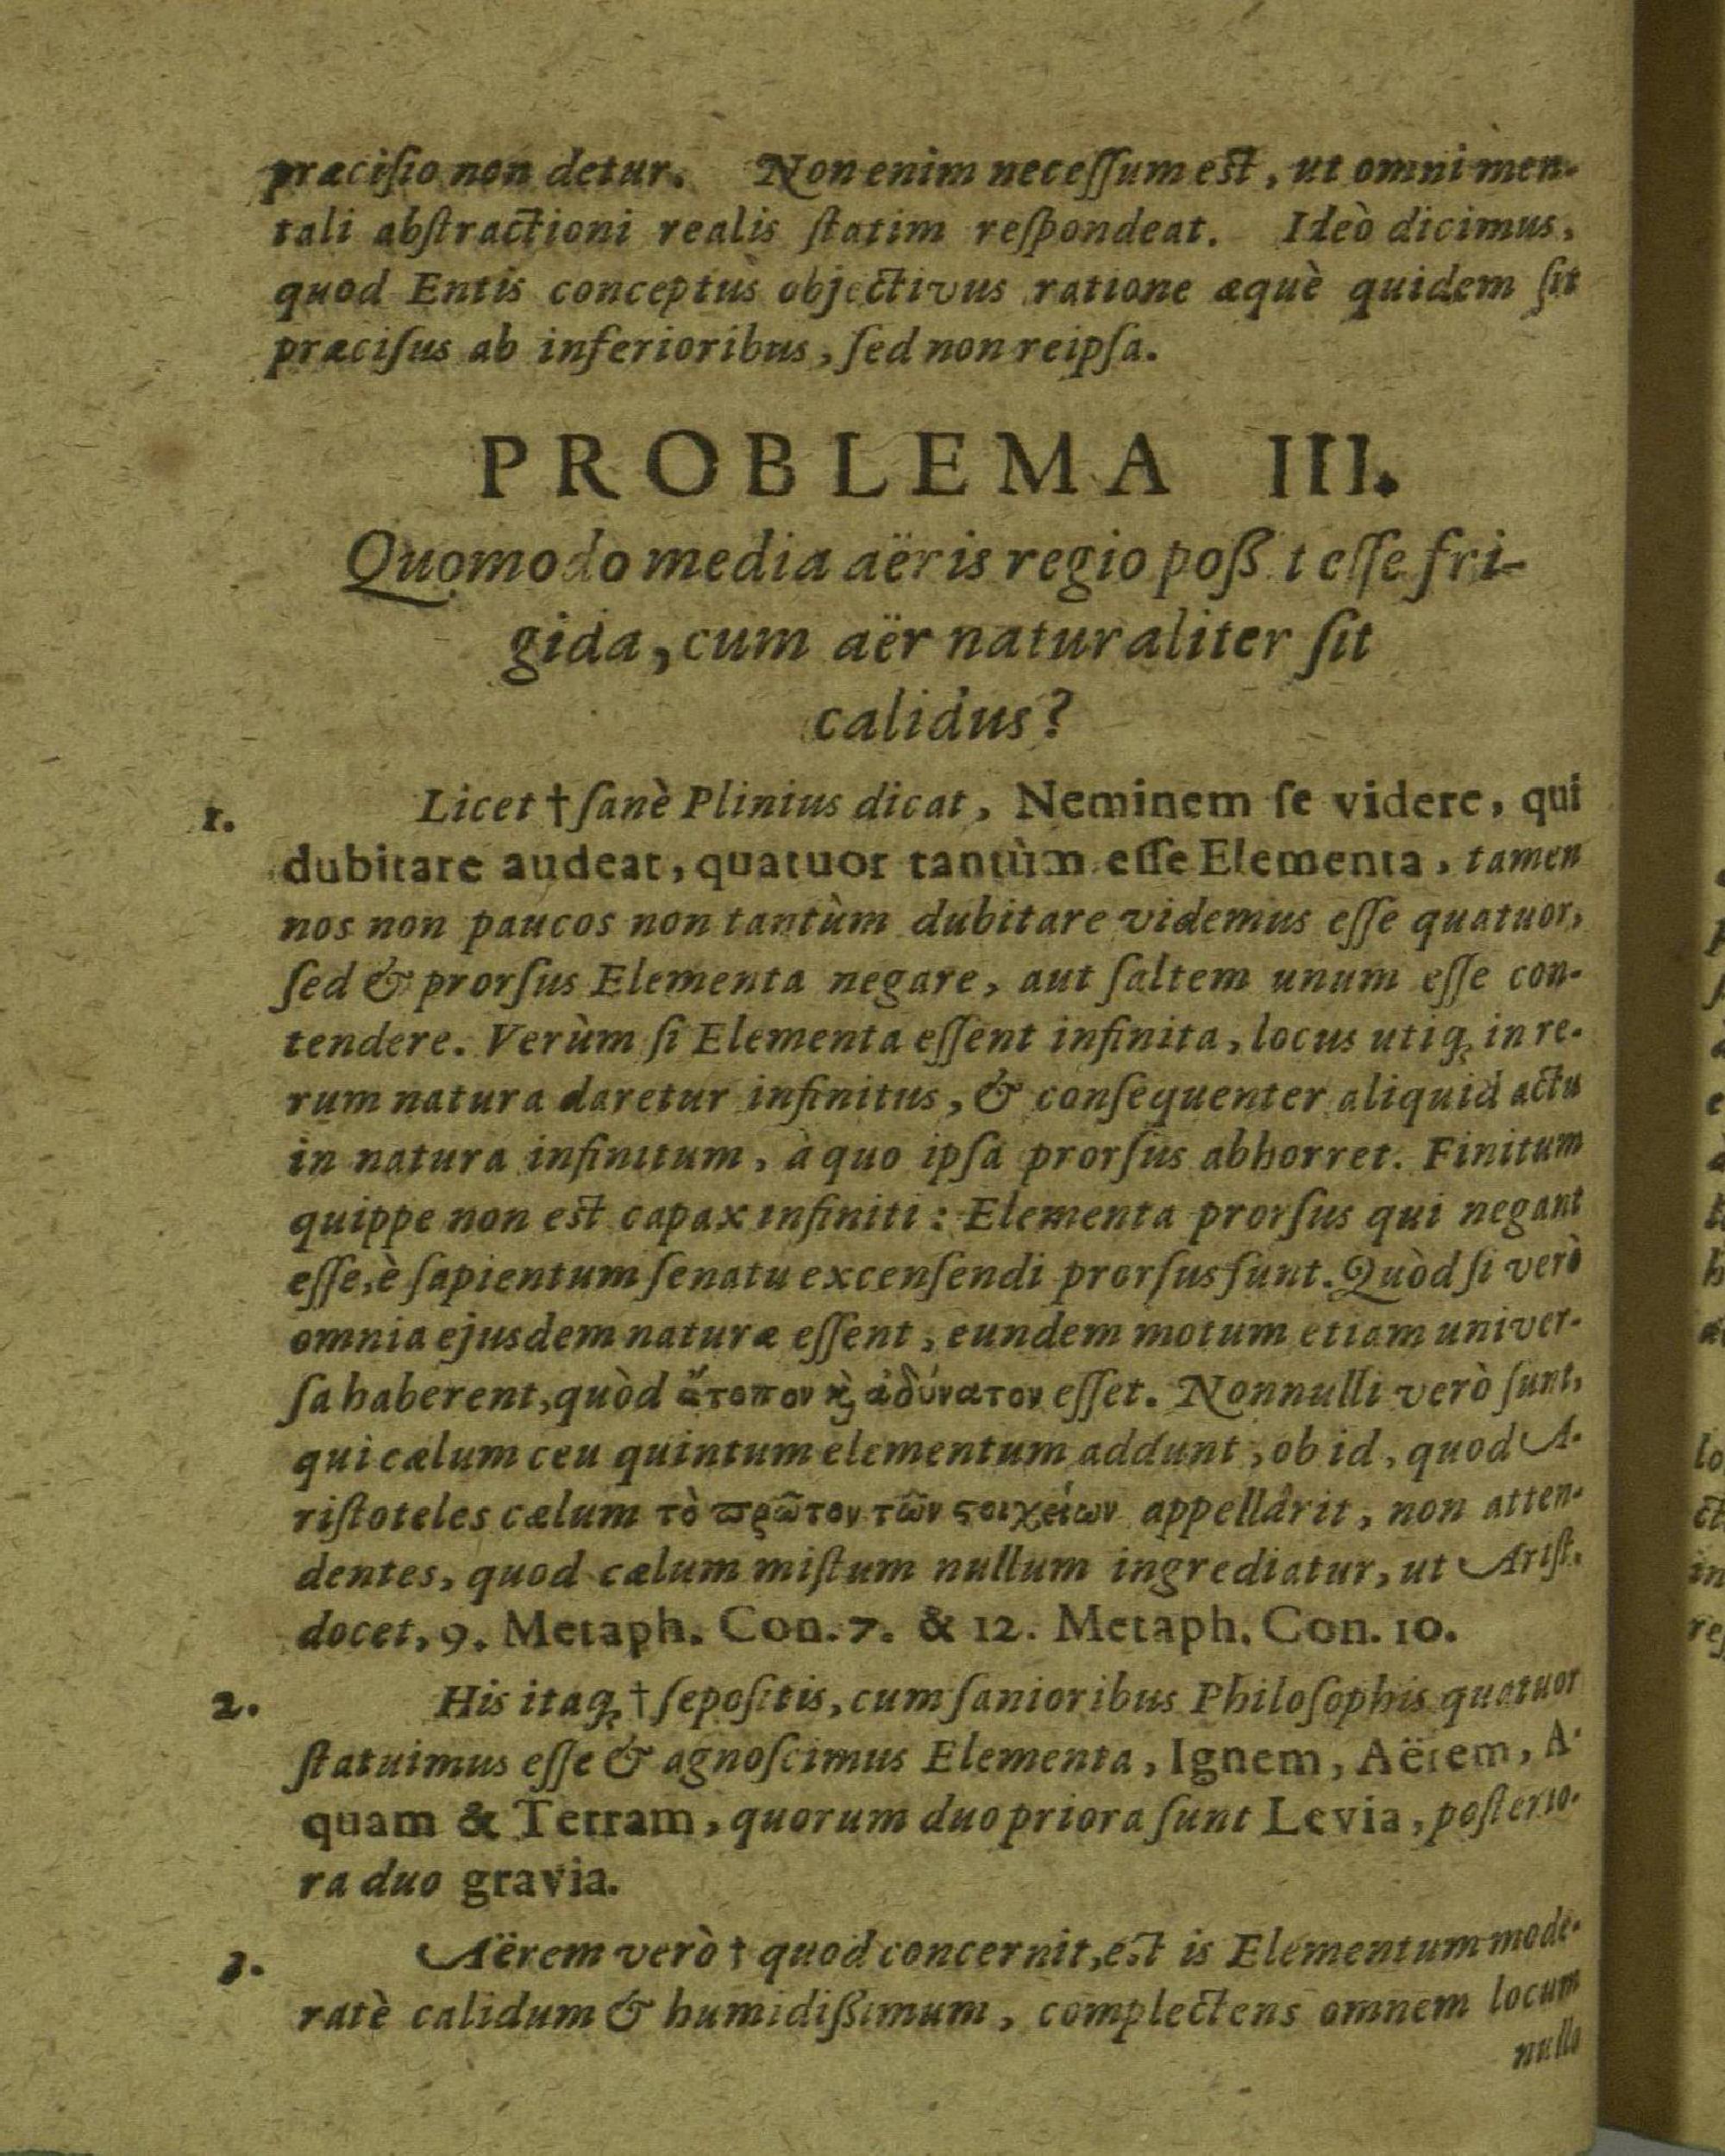 præcisio non detur. Non enim necessum est, ut omni men-
tali abstractioni realis statim respondeat. Ideò dicimus,
quod Entis conceptus objectivus ratione æquè quidem sit
præcisus ab inferioribus, sed non reipsa.
PROBLEMA III.
Quomodo media aëris regio poß t esse fri-
gida, cum aër naturaliter sit
calidus?
1. Licet † sanè Plinius dicat, Neminem se videre, qui
dubitare audeat, quatuor tantùm esse Elementa, tamen
nos non paucos non tantùm dubitare videmus esse quatuor,
sed & prorsus Elementa negare, aut saltem unum esse con-
tendere. Verùm si Elementa essent infinita, locus utiq; in re-
rum natura daretur infinitus, & consequenter aliquid actu
in natura infinitum, à quo ipsa prorsus abhorret. Finitum
quippe non est capax infiniti: Elementa prorsus qui negant
esse, è sapientum senatu excensendi prorsus sunt. Quòd si verò
omnia ejusdem naturæ essent, eundem motum etiam univer-
sa haberent, quòd ἄτοπον ϗ̀ ἀδύνατον esset. Nonnulli verò sunt,
qui cælum ceu quintum elementum addunt, ob id, quod A-
ristoteles cælum τὸ ϖρῶτον τῶν ϛοιχείων appellârit, non atten-
dentes, quod cælum mistum nullum ingrediatur, ut Arist.
docet, 9. Metaph. Con. 7. & 12. Metaph. Con. 10.
2. His itaq; † sepositis, cum sanioribus Philosophis quatuor
statuimus esse & agnoscimus Elementa, Ignem, Aërem, A-
quam & Terram, quorum duo priora sunt Levia, posterio-
ra duo gravia.
3. Aërem verò † quod concernit, est is Elementum mode-
ratè calidum & humidißimum, complectens omnem locum
nullo